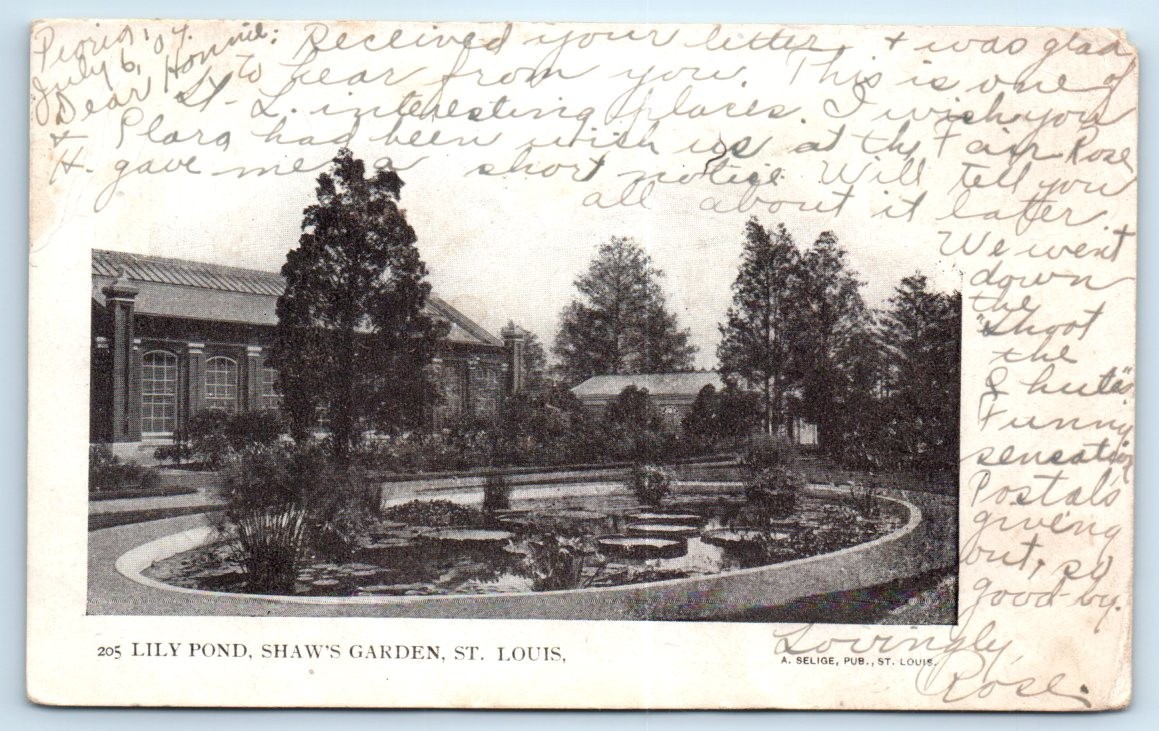 Peoria,
July 6, 07.
Dear Honnie: Received your letter, + was glad
to hear from you. This is one of
St. L. interesting places. I wish you
& Clara had been with us at the Fair. Rose
H. gave me a short notice. Will tell you
all about it latter
We went
down
the
"Shoot
the
Shuts"
Funny
sensation
Postals
giving
out, so
good-by.
Lovingly,
Rose.
205 LILY POND, SHAW'S GARDEN, ST. LOUIS,
A. SELIGE, PUB., ST. LOUIS.